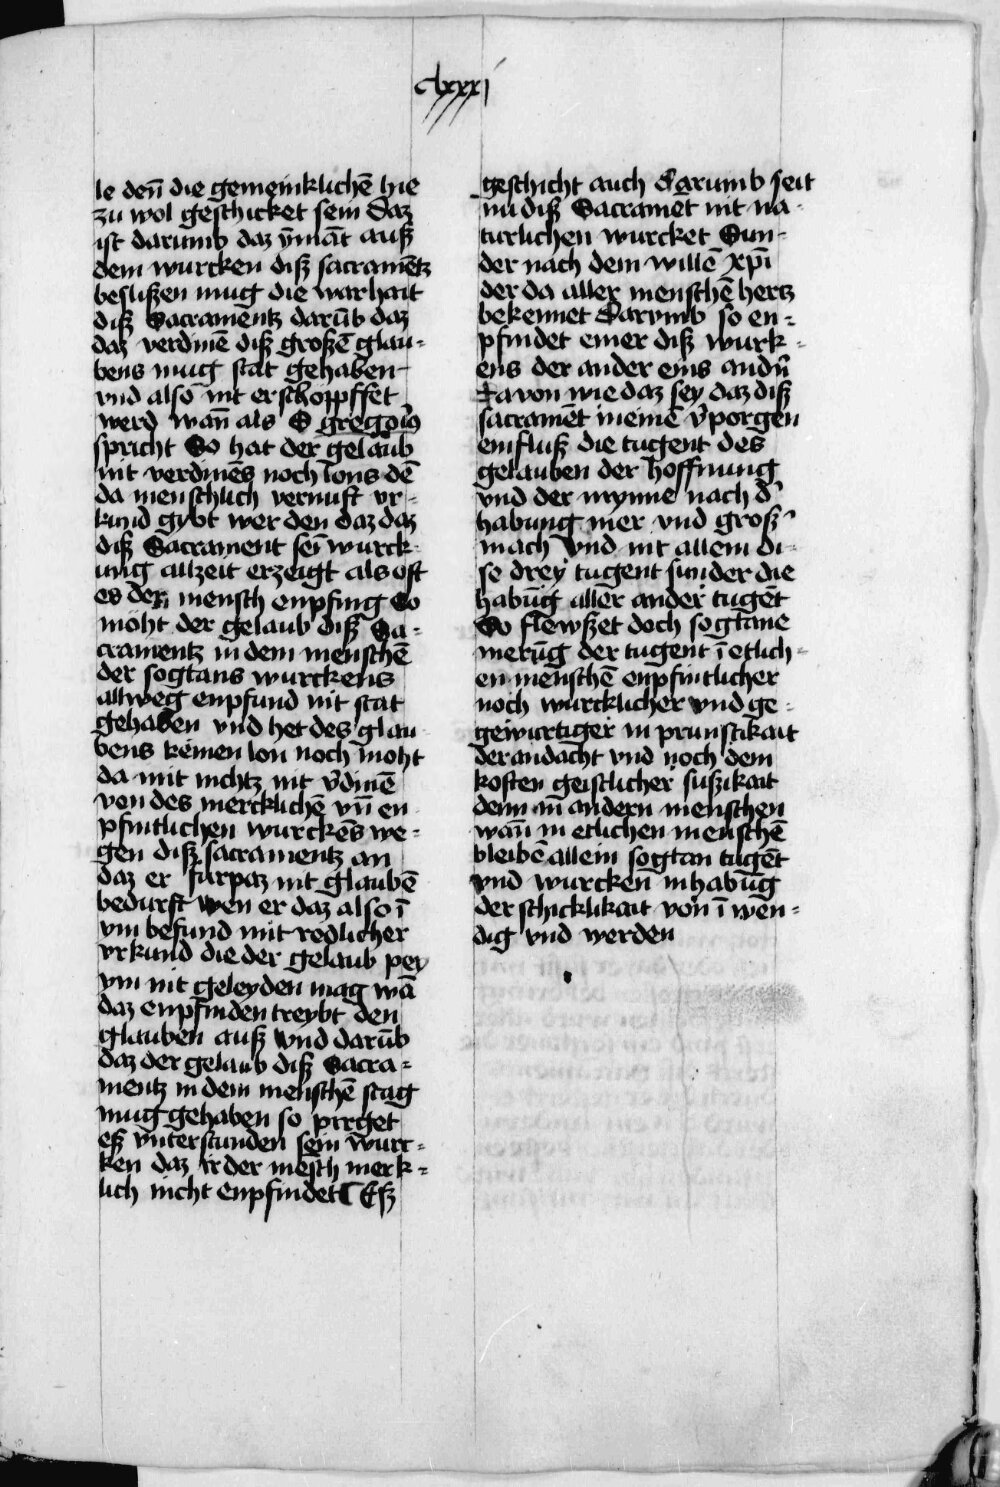 clxxxj
le den̄ die gemeinklichē hie
zu wol geschicket sein Daz
ist darumb daz ȳmāt auß
dem wurcken diß sacramētz
beslißen mug die warhait
diß Sacramentz darūb daz
daz verdinē diß großē glau-
bens mug stat gehaben
vnd also nit erschopffet
werd wan̄ als S gregoriꝰ
spricht So hat der gelaub
nit verdinēs noch lons dē
da menschlich vernuft vr-
kund gybt wer den daz daz
diß Sacrament sei wurck-
ung allzeit erzeigt als oft
es der mensch enpfing So
moht der gelaub diß Sa-
cramentz in dem menschē
der sogtans wurckens
allweg enpfund nit stat
gehaben vnd het des glau
bens keinen lon noch moht
da mit nichtz nit v̄dinē
von des mercklichē vn̄ en
pfintlichen wurckēs we-
gen diß sacramentz an
daz er furpaz nit glaubē
bedurft wen er daz also ī
vm befund mit redlicher
vrkund die der gelaub pey
vm nit geleyden mag wā
daz enpfinden treybt den
glauben auß vnd darūb
daz der gelaub diß Sacra-
mentz in dem menschē stag
mug gehaben so pirget
eß vnterstunden sein wurc-
ken daz ir der mēsch merk-
lich nicht enpfindet Eß
geschicht auch darumb seit
nu diß Sacramēt nit na-
turlichen wurcket Sun-
der nach dem willē xp̄i
der da aller menschē hertz
bekennet Darvmb so en-
pfindet einer diß wurk-
ens der ander eins andn̄
Davon wie daz sey daz diß
sacramēt in einē v̄porgen
einfluß die tugent des
gelauben der hoffnung
vnd der mynne nach d̉
habung mer vnd groß̉
mach vnd nit allein di-
se drey tugent sunder die
habūg aller ander tugēt
So flewßet doch sogtane
merūg der tugent ī etlich-
en menschē enpfintlicher
noch wurcklicher vnd ge-
gewurtiger in prunstikait
der andacht vnd noch dem
kosten geistlicher sußikait
denn in andern menschen
wan̄ in etlichen menschē
bleibē allein sogtan tugēt
vnd wurcken inhabūg
der schicklikait von ī wēn-
dig vnd werden